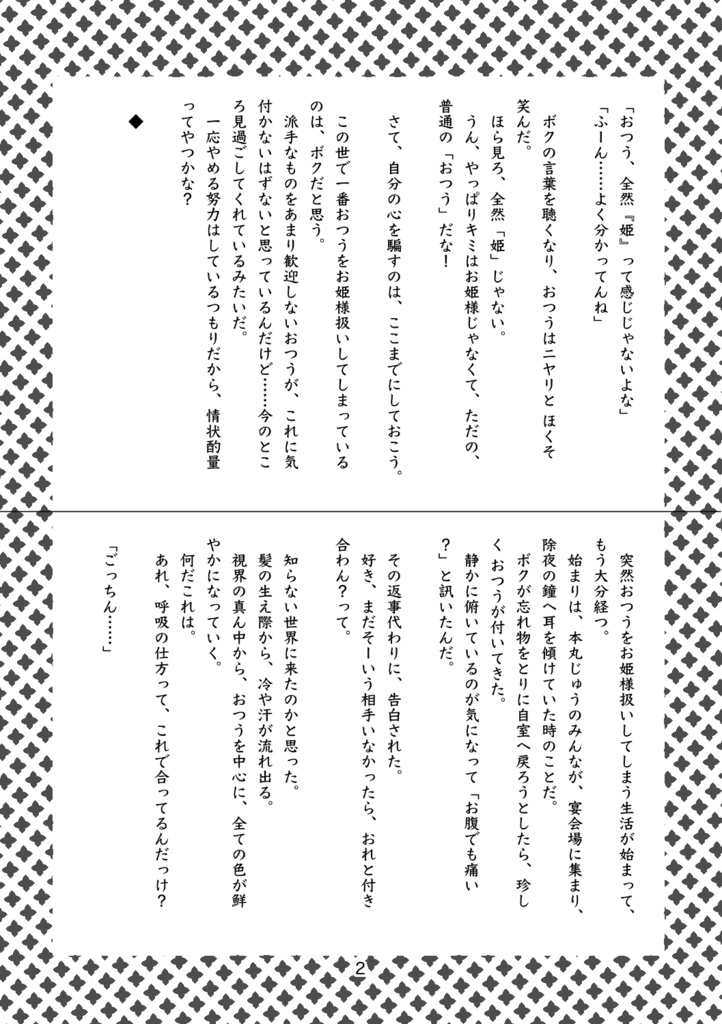 「おつう、全然『姫』って感じじゃないよな」
「ふーん……よく分かってんね」
ボクの言葉を聴くなり、おつうはニヤリと ほくそ
笑んだ。
ほら見ろ、全然「姫」じゃない。
うん、やっぱりキミはお姫様じゃなくて、ただの、
普通の「おつう」だな！
さて、自分の心を騙すのは、ここまでにしておこう。
この世で一番おつうをお姫様扱いしてしまっている
のは、ボクだと思う。
派手なものをあまり歓迎しないおつうが、これに気
付かないはずないと思っているんだけど……今のとこ
ろ見過ごしてくれているみたいだ。
一応やめる努力はしているつもりだから、情状酌量
ってやつかな？
◆
突然おつうをお姫様扱いしてしまう生活が始まって、
もう大分経つ。
始まりは、本丸じゅうのみんなが、宴会場に集まり、
除夜の鐘へ耳を傾けていた時のことだ。
ボクが忘れ物をとりに自室へ戻ろうとしたら、珍し
く おつうが付いてきた。
静かに俯いているのが気になって「お腹でも痛い
？」と訊いたんだ。
その返事代わりに、告白された。
好き、まだそーいう相手いなかったら、おれと付き
合わん？って。
知らない世界に来たのかと思った。
髪の生え際から、冷や汗が流れ出る。
視界の真ん中から、おつうを中心に、全ての色が鮮
やかになっていく。
何だこれは。
あれ、呼吸の仕方って、これで合ってるんだっけ？
「ごっちん……」
2